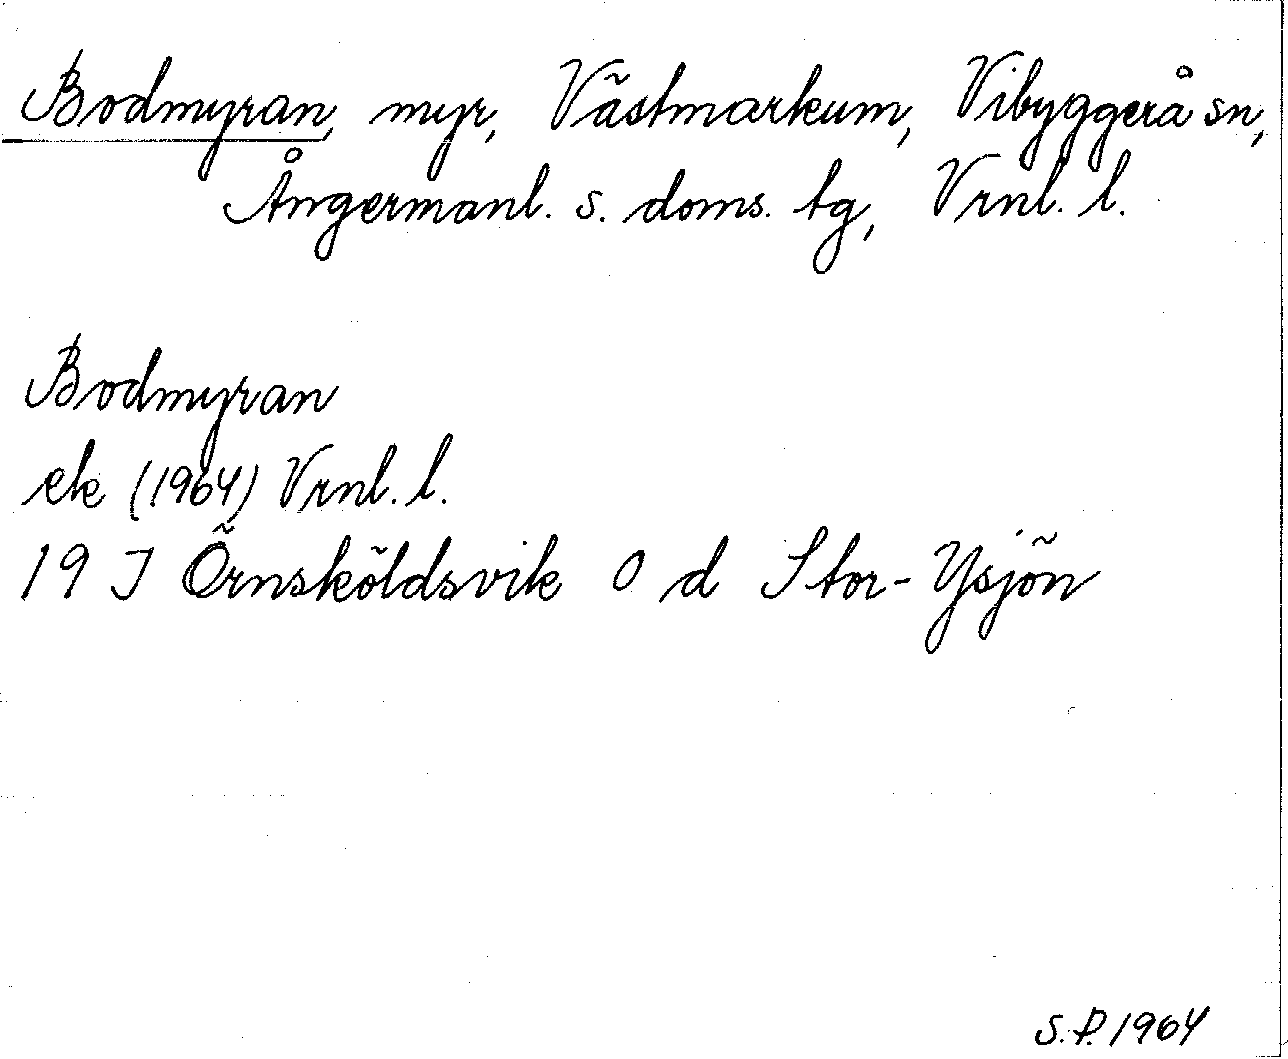 Bodmyran, myr, Västmarkum, Vibyggerå sn,
Ångermanl. s. doms. tg, Vrnl. l.
Bodmyran
ek (1964) Vrnl. l.
19 J Örnsköldsvik 0 d Stor-Ysjön
S.P. 1964